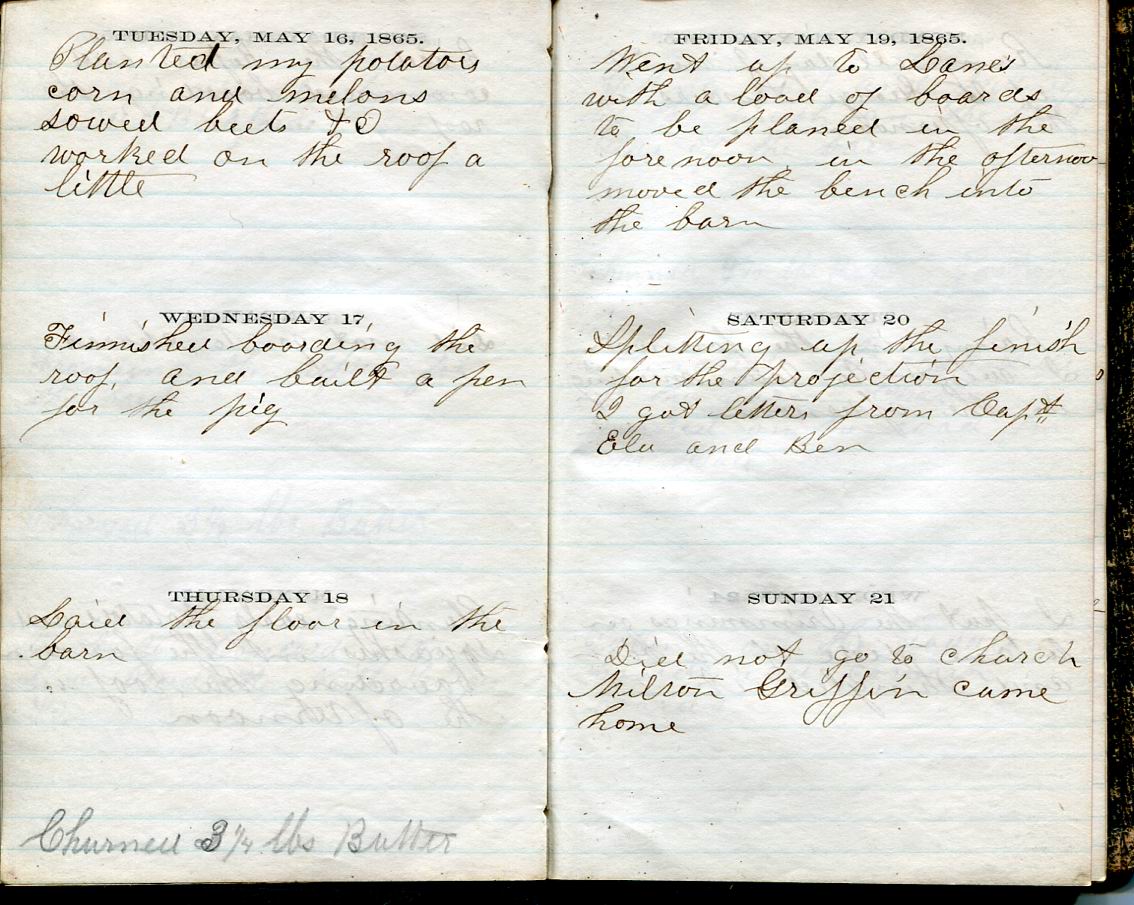 TUESDAY, MAY 16, 1865.
Planted my potatoes
corn and melons
sowed beets &c
worked on the roof a
little
WEDNESDAY 17
Finnished boarding the
roof, and built a pen
for the pig
THURSDAY 18
Laid the floor in the
barn
Churned 3 1/4 lbs Butter
FRIDAY, MAY 19, 1865.
Went up to Lane's
with a load of boards
to be planed in the
forenoon, in the afternoon
moved the bench into
the barn
SATURDAY 20
Splitting up the finish
for the projection
I got letters from Capt
Ela and Ben
SUNDAY 21
Did not go to church
Milton Griffin came
home